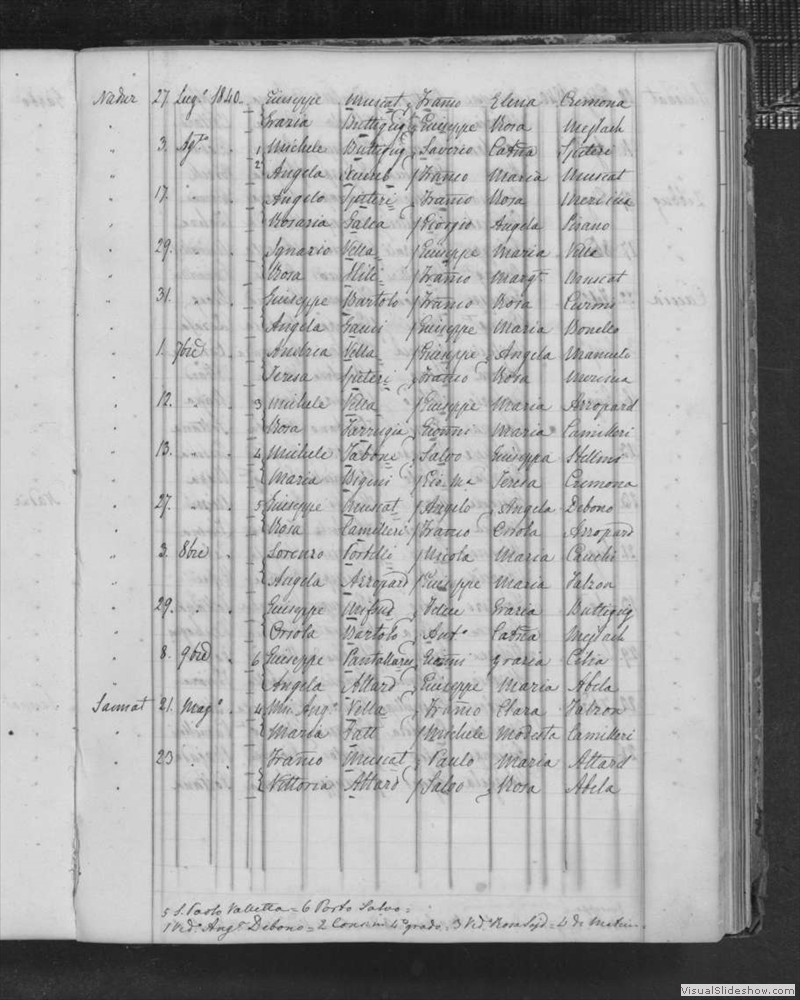 Nadur 27. Lug.o 1840. Giuseppe Muscat Franco Elena Cremona
Grazia Buttigieg Giuseppe Rosa Mejlach
3. Ag.to 1 Michele Buttigieg Saverio Catna Spiteri
2 Angela Franco Maria Muscat
17. Angelo Spiteri Franco Rosa
Rosaria Galea Giorgio Angela Pisano
29. Ignazio Vella Giuseppe Maria Vella
Rosa Mili Franco Margt Muscat
31. Giuseppe Bartolo Franco Rosa Curmi
Angela Gauci Giuseppe Maria Bonello
1. 7bre Andrea Vella Giuseppe Angela
Teresa Spiteri Franco Rosa
12. 3 Michele Vella Giuseppe Maria Azzopard
Rosa Farrugia Gionni Maria Camilleri
13. 4 Michele Tabone Salvo Giuseppa
Maria Bigeni Gio Ma Teresa Cremona
27. 5 Giuseppe Muscat Angelo Angela Debono
Rosa Camilleri Franco Orsola Azzopard
3. 8bre Lorenzo Portelli Nicola Maria Cauchi
Angela Azzopard Giuseppe Maria Falzon
29. Giuseppe Mifsud Felice Grazia Buttigieg
Orsola Bartolo Anto Catna Mejlach
8. 9bre 6 Giuseppe Pantallaresc Gionni Grazia Celia
Angela Attard Giuseppe Maria Abela
Sannat 21. Mag.o 4 Mic. Ang.o Vella Franco Clara Falzon
Maria Tatt Michele Modesta Camilleri
23 Franco Muscat Paulo Maria Attard
Vittoria Attard Salvo Rosa Abela
5 S. Paolo Valletta = 6 Porto Salvo =
1 Ved.o Ang.a Debono = 2 Consin 4.o grado = 3 Ved.o Rosa = 4 Di
VisualSlideshow.com